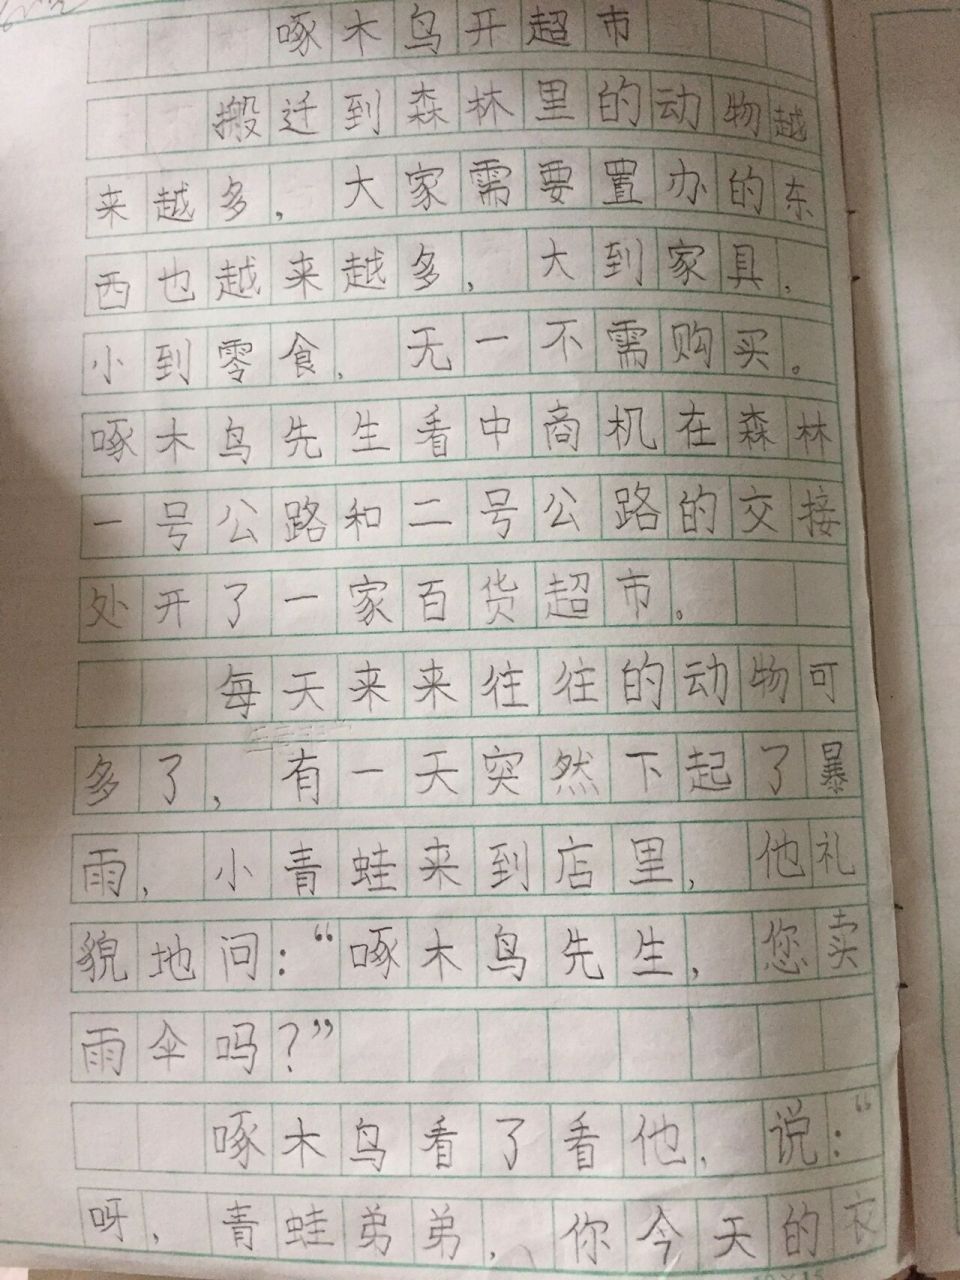 啄木鸟开超市
搬迁到森林里的动物越
来越多，大家需要置办的东
西也越来越多，大到家具，
小到零食，无一不需购买。
啄木鸟先生看中商机在森林
一号公路和二号公路的交接
处开了一家百货超市。
每天来来往往的动物可
多了，有一天突然下起了暴
雨，小青蛙来到店里，他礼
貌地问：“啄木鸟先生，您卖
雨伞吗？”
啄木鸟看了看他，说：“
呀，青蛙弟弟，你今天的衣